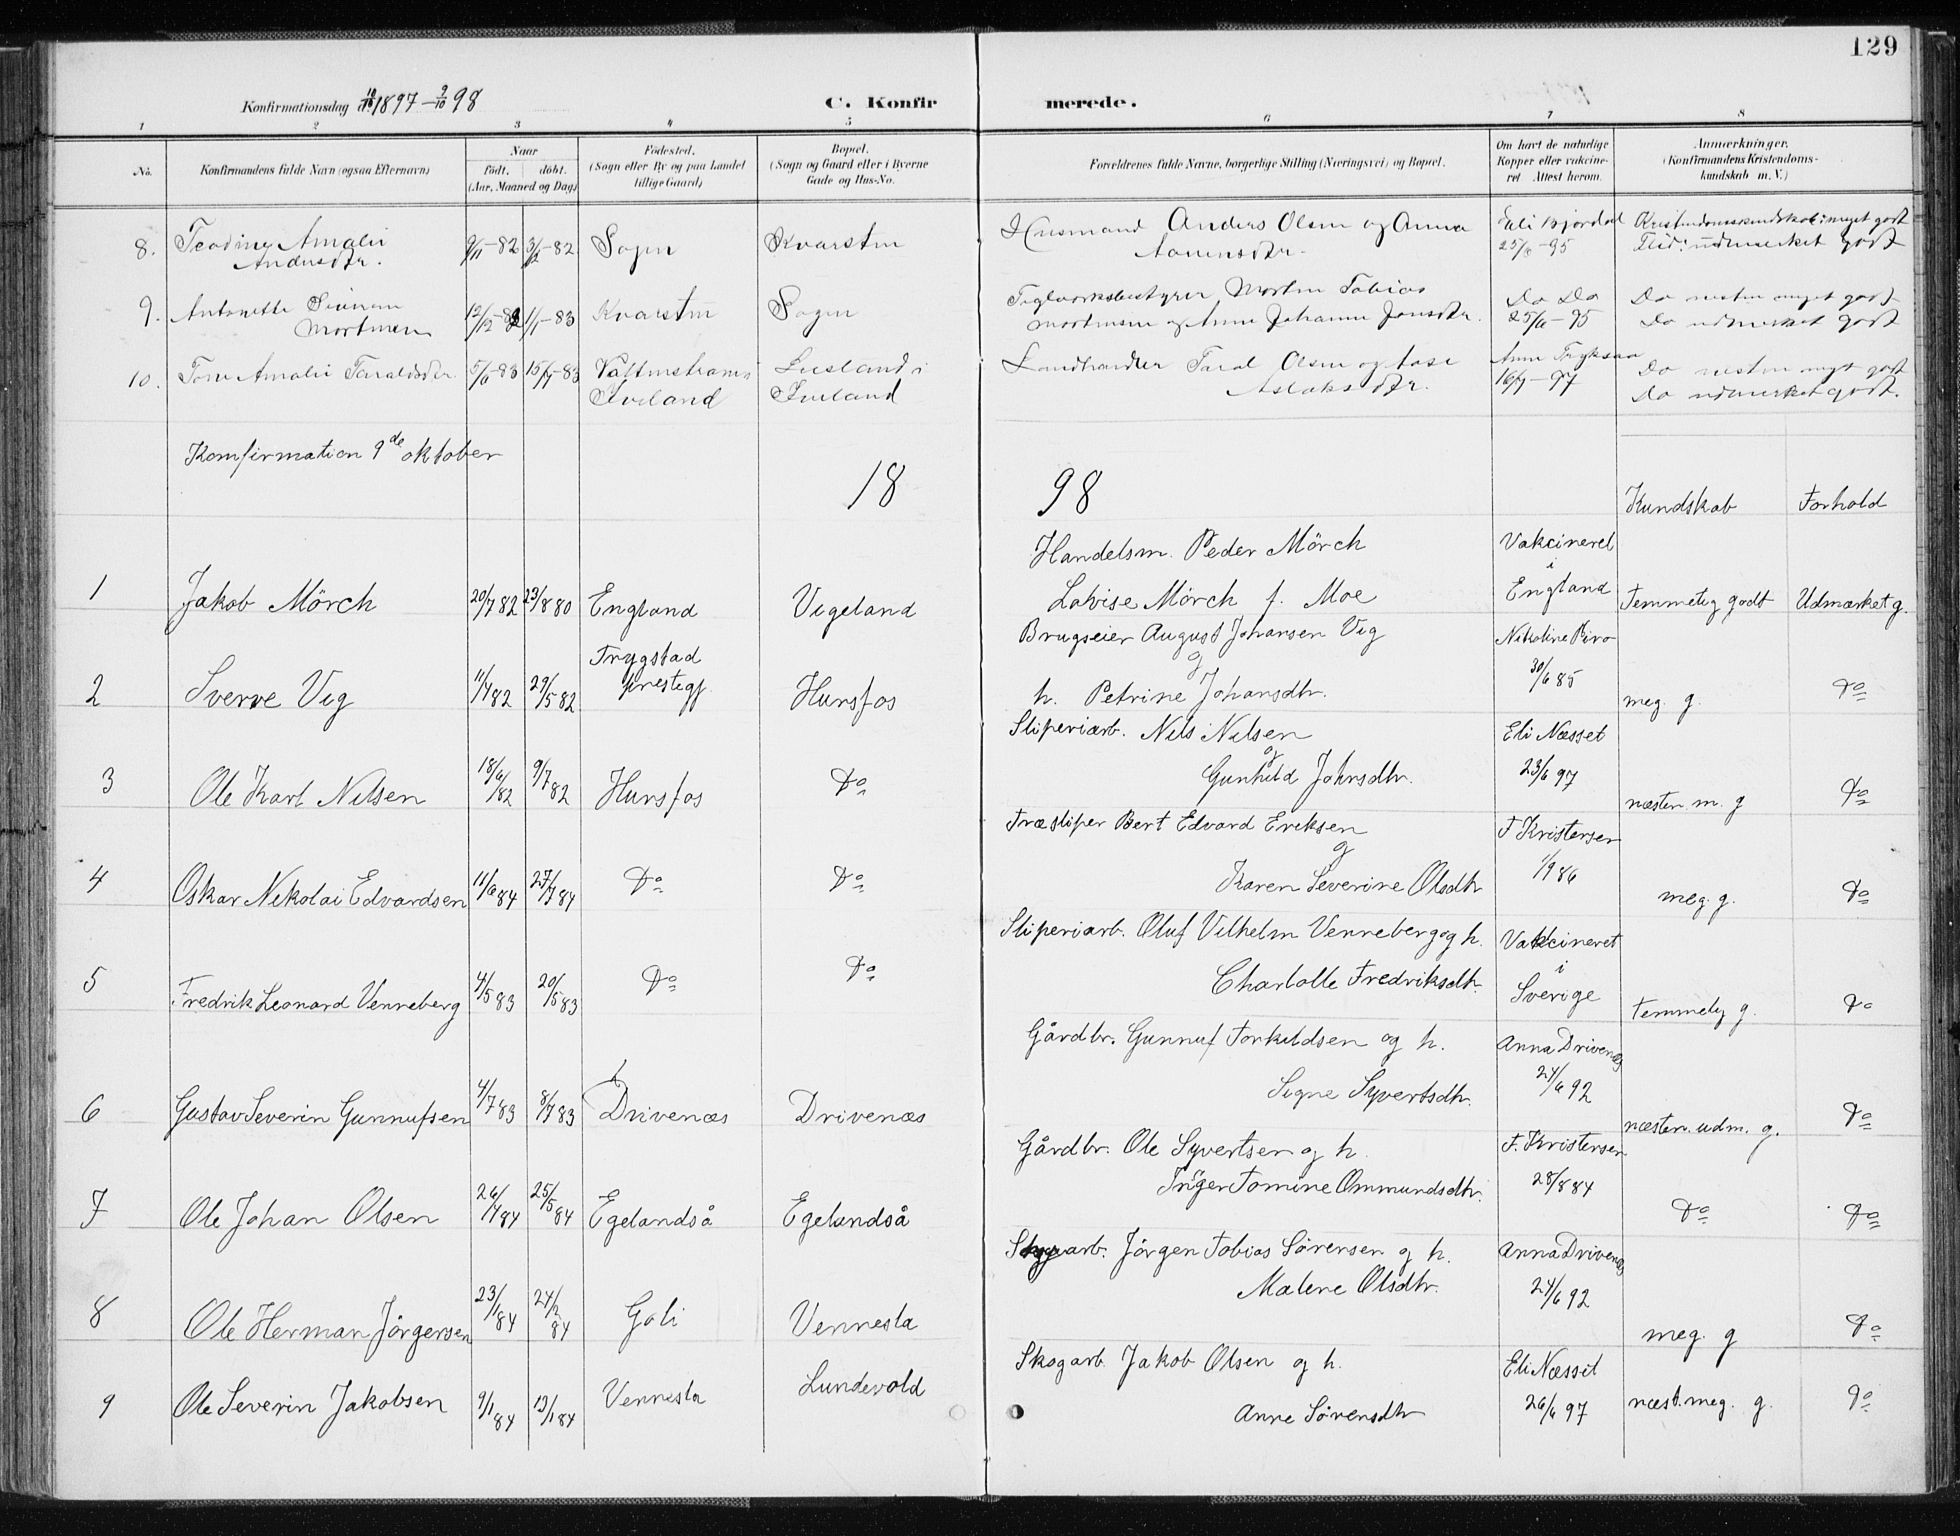 129
Konfirmationsdag d. 10/10 1897 – 9/10 98
C. Konfir merede.
1 2 3 4 5 6 7 8
No.
Konfirmandens fulde Navn (ogsaa Efternavn)
Naar
födt. döbt.
(Aar, Maaned og Dag)
Födested.
(Sogn eller By og paa Landet
tillige Gaard)
Bopæl.
(Sogn og Gaard eller i Byerne
Gade og Hus-No.
Forældrenes fulde Navne, borgerlige Stilling (Næringsvei) og Bopæl.
Om havt de naturlige
Kopper eller vakcine-
ret Attest herom.
Anmærkninger,
(Konfirmandens Kristendoms-
kundskab m. V.)
8. Teodine Amalie Andersdtr. 9/11–82 3/12–82 Sogn Kvarstein
Husmand Anders Olsen og Anna
25/6–95
Kristendomskundskab: meget godt
Flid: udmerket godt
9. Antonette Mortensen 12/12–82 1/1–83 Kvarstein Sogn
Teglverksbestyrer Morten Tobias
Mortensen og Anne Johanne Jensdtr.
Do Do
25/6–95
Do nesten meget godt
Do udmerket godt
10. Tone Amalie Taraldsdtr. 5/6–83 15/7–83 Iveland
i Iveland
Landhandler Taral Olsen og Aase
Aslaksdtr.
16/7–97
Do nesten meget godt
Do udmerket godt.
Konfirmation 9de oktober
18 98
Kundskab Forhold
1 Jakob Mörch 20/7 82 23/8 80 England Vigeland
Handelsm. Peder Mörch
Lovise Mörch f. Moe
Vakcineret
i
England
Temmelig godt Udmærket g.
2 Sverre Vig 11/4 82 29/5 82 Trygstad
prestegj. Hunsfos
Brugseier August Johansen Vig
og
h. Petrine Johansdtr.
Nikoline Piro
30/6 85
meg. g. Do
3 Ole Karl Nilsen 18/6 82 9/7 82 Hunsfos Do
Sliperiarb. Nils Nilsen
og
Gunhild Johnsdtr.
Eli Næsset
23/6 97
næsten m. g Do
4 Oskar Nikolai Edvardsen 11/6 84 27/7 84 Do Do
Træsliper Bert Edvard Eriksen
og
Karen Severine Olsdtr
F. Kristensen
1/9 86
meg. g. Do
5 Fredrik Leonard Venneberg 4/5 83 20/5 83 Do Do
Sliperiarb. Oluf Vilhelm Venneberg og h.
Charlotte Fredriksdtr.
Vakcineret
i
Sverige
temmelig g. Do
6 Gustav Severin Gunnufsen 4/7 83 8/7 83 Drivenæs Drivenæs
Gårdbr. Gunnuf Torkildsen og h.
Signe Syvertsdtr.
Anna Drivenæs
24/6 92
næsten udm. g. Do
7 Ole Johan Olsen 26/4 84 25/5 84 Egelandså Egelandså
Gårdbr. Ole Syvertsen og h.
Inger Tomine Ommundsdtr.
F. Kristensen
28/8 84
Do Do
8 Ole Herman Jörgensen 23/1 84 24/2 84 Goli Vennesla
Jörgen Tobias Sörensen og h.
Malene Olsdtr.
Anna Drivenæs
24/6 92
meg. g Do
9 Ole Severin Jakobsen 9/1 84 13/1 84 Vennesla Lundevold
Skogarb. Jakob Olsen og h.
Anne Sörensdtr
Eli Næsset
26/6 97
næst. meg. g. Do